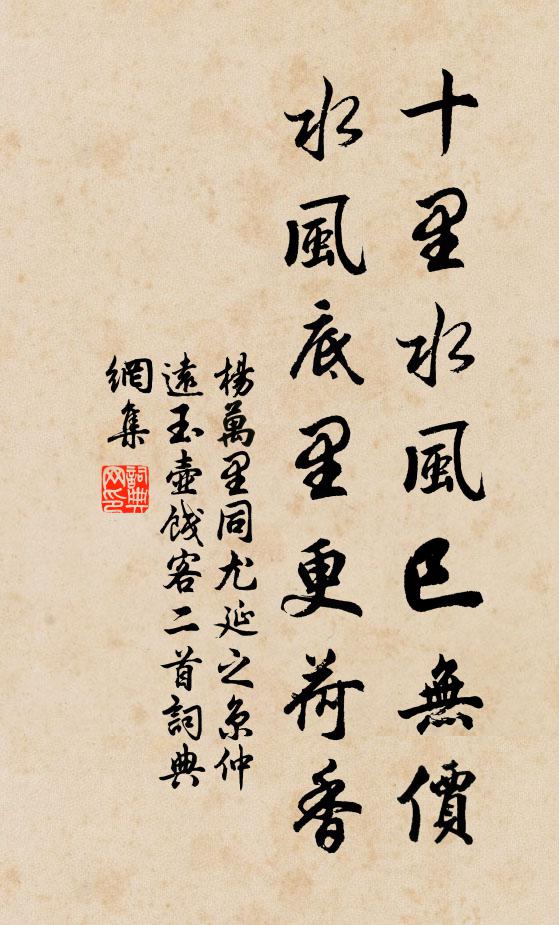 十里水風已無價
水風底里更荷香
楊萬里同尤延之京仲
遠玉壺餞客二首詞典
網集
詞典
网印